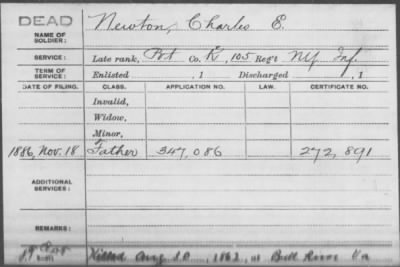 DEAD
NAME OF SOLDIER: Newton, Charles E.
SERVICE: Late rank, Pvt Co. K, 105 Reg't NY Inf.
TERM OF SERVICE: Enlisted , 1 Discharged , 1
DATE OF FILING. CLASS. APPLICATION NO. LAW. CERTIFICATE NO.
Invalid,
Widow,
Minor,
1886, Nov. 18 Father 347,086 272,891
ADDITIONAL SERVICES:
REMARKS:
Killed Aug 30, 1862, at Bull Run Va